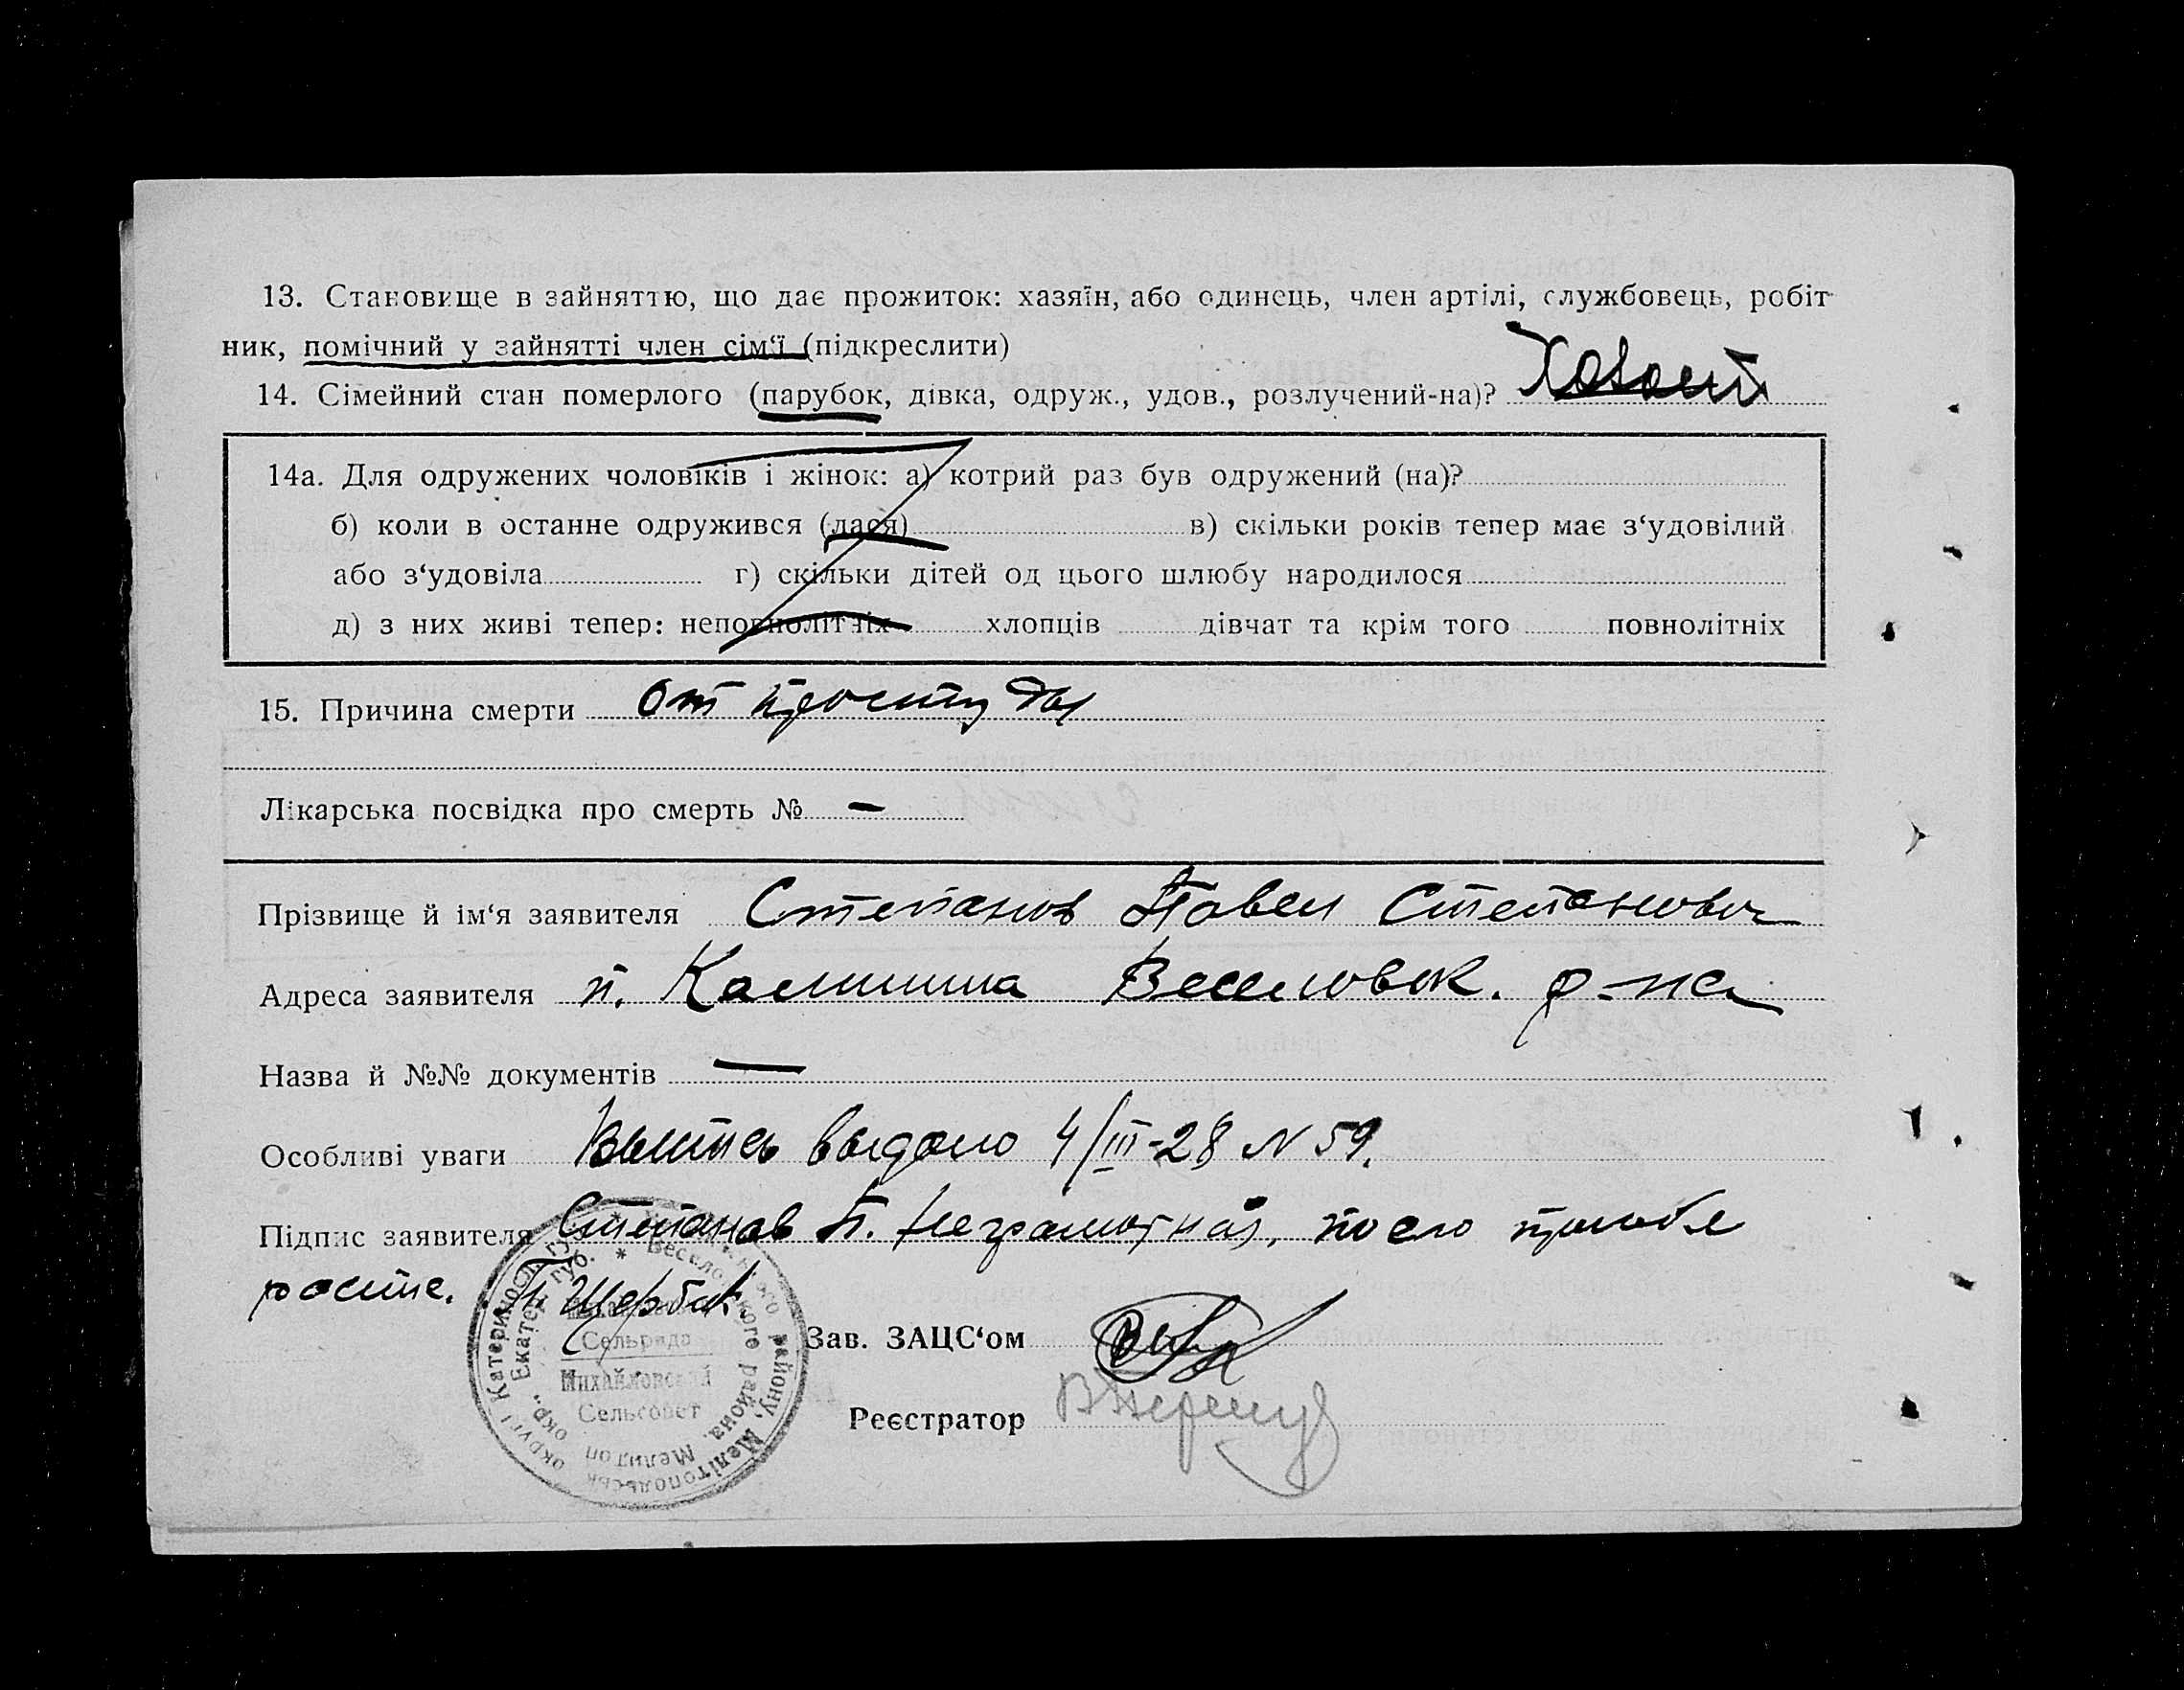 13. Становище в зайняттю, що дає прожиток: хазяїн, або одинець, член артілі, службовець, робіт-
ник, помічний у зайнятті член сім'ї (підкреслити)
14. Сімейний стан померлого (парубок, дівка, одруж., удов., розлучений-на)? Холост
14а. Для одружених чоловіків і жінок: а) котрий раз був одружений (на)?
б) коли в останнє одружився (лася) в) скільки років тепер має з'удовілий
або з'удовіла г) скільки дітей од цього шлюбу народилося
д) з них живі тепер: неповнолітніх хлопців дівчат та крім того повнолітніх
15. Причина смерти от простуды
Лікарська посвідка про смерть № —
Прізвище й ім'я заявителя Степанов Павел Степанович
Адреса заявителя п. Калинина Веселовск. р-на
Назва й №№ документів —
Особливі уваги Выпись выдано 4/III-28 N 59.
Підпис заявителя Степанов П. Неграмотная, по его прозьбе
росписе. Щербак
Зав. ЗАЦС'ом
Реєстратор
Веселовского района, Мелитоп окр. Екатер. губ.
району, Мелітопольськ округи Катеринослав губ.
Сельрада
Михайловский
Сельсовет